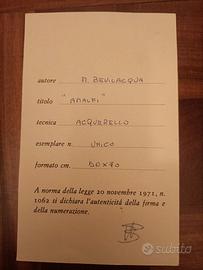 autore M. BEVILACQUA
titolo "AMALFI"
tecnica ACQUERELLO
esemplare n. UNICO
formato cm. 50x70
A norma della legge 20 novembre 1971, n.
1062 si dichiara l'autenticità della forma e
della numerazione.
subito